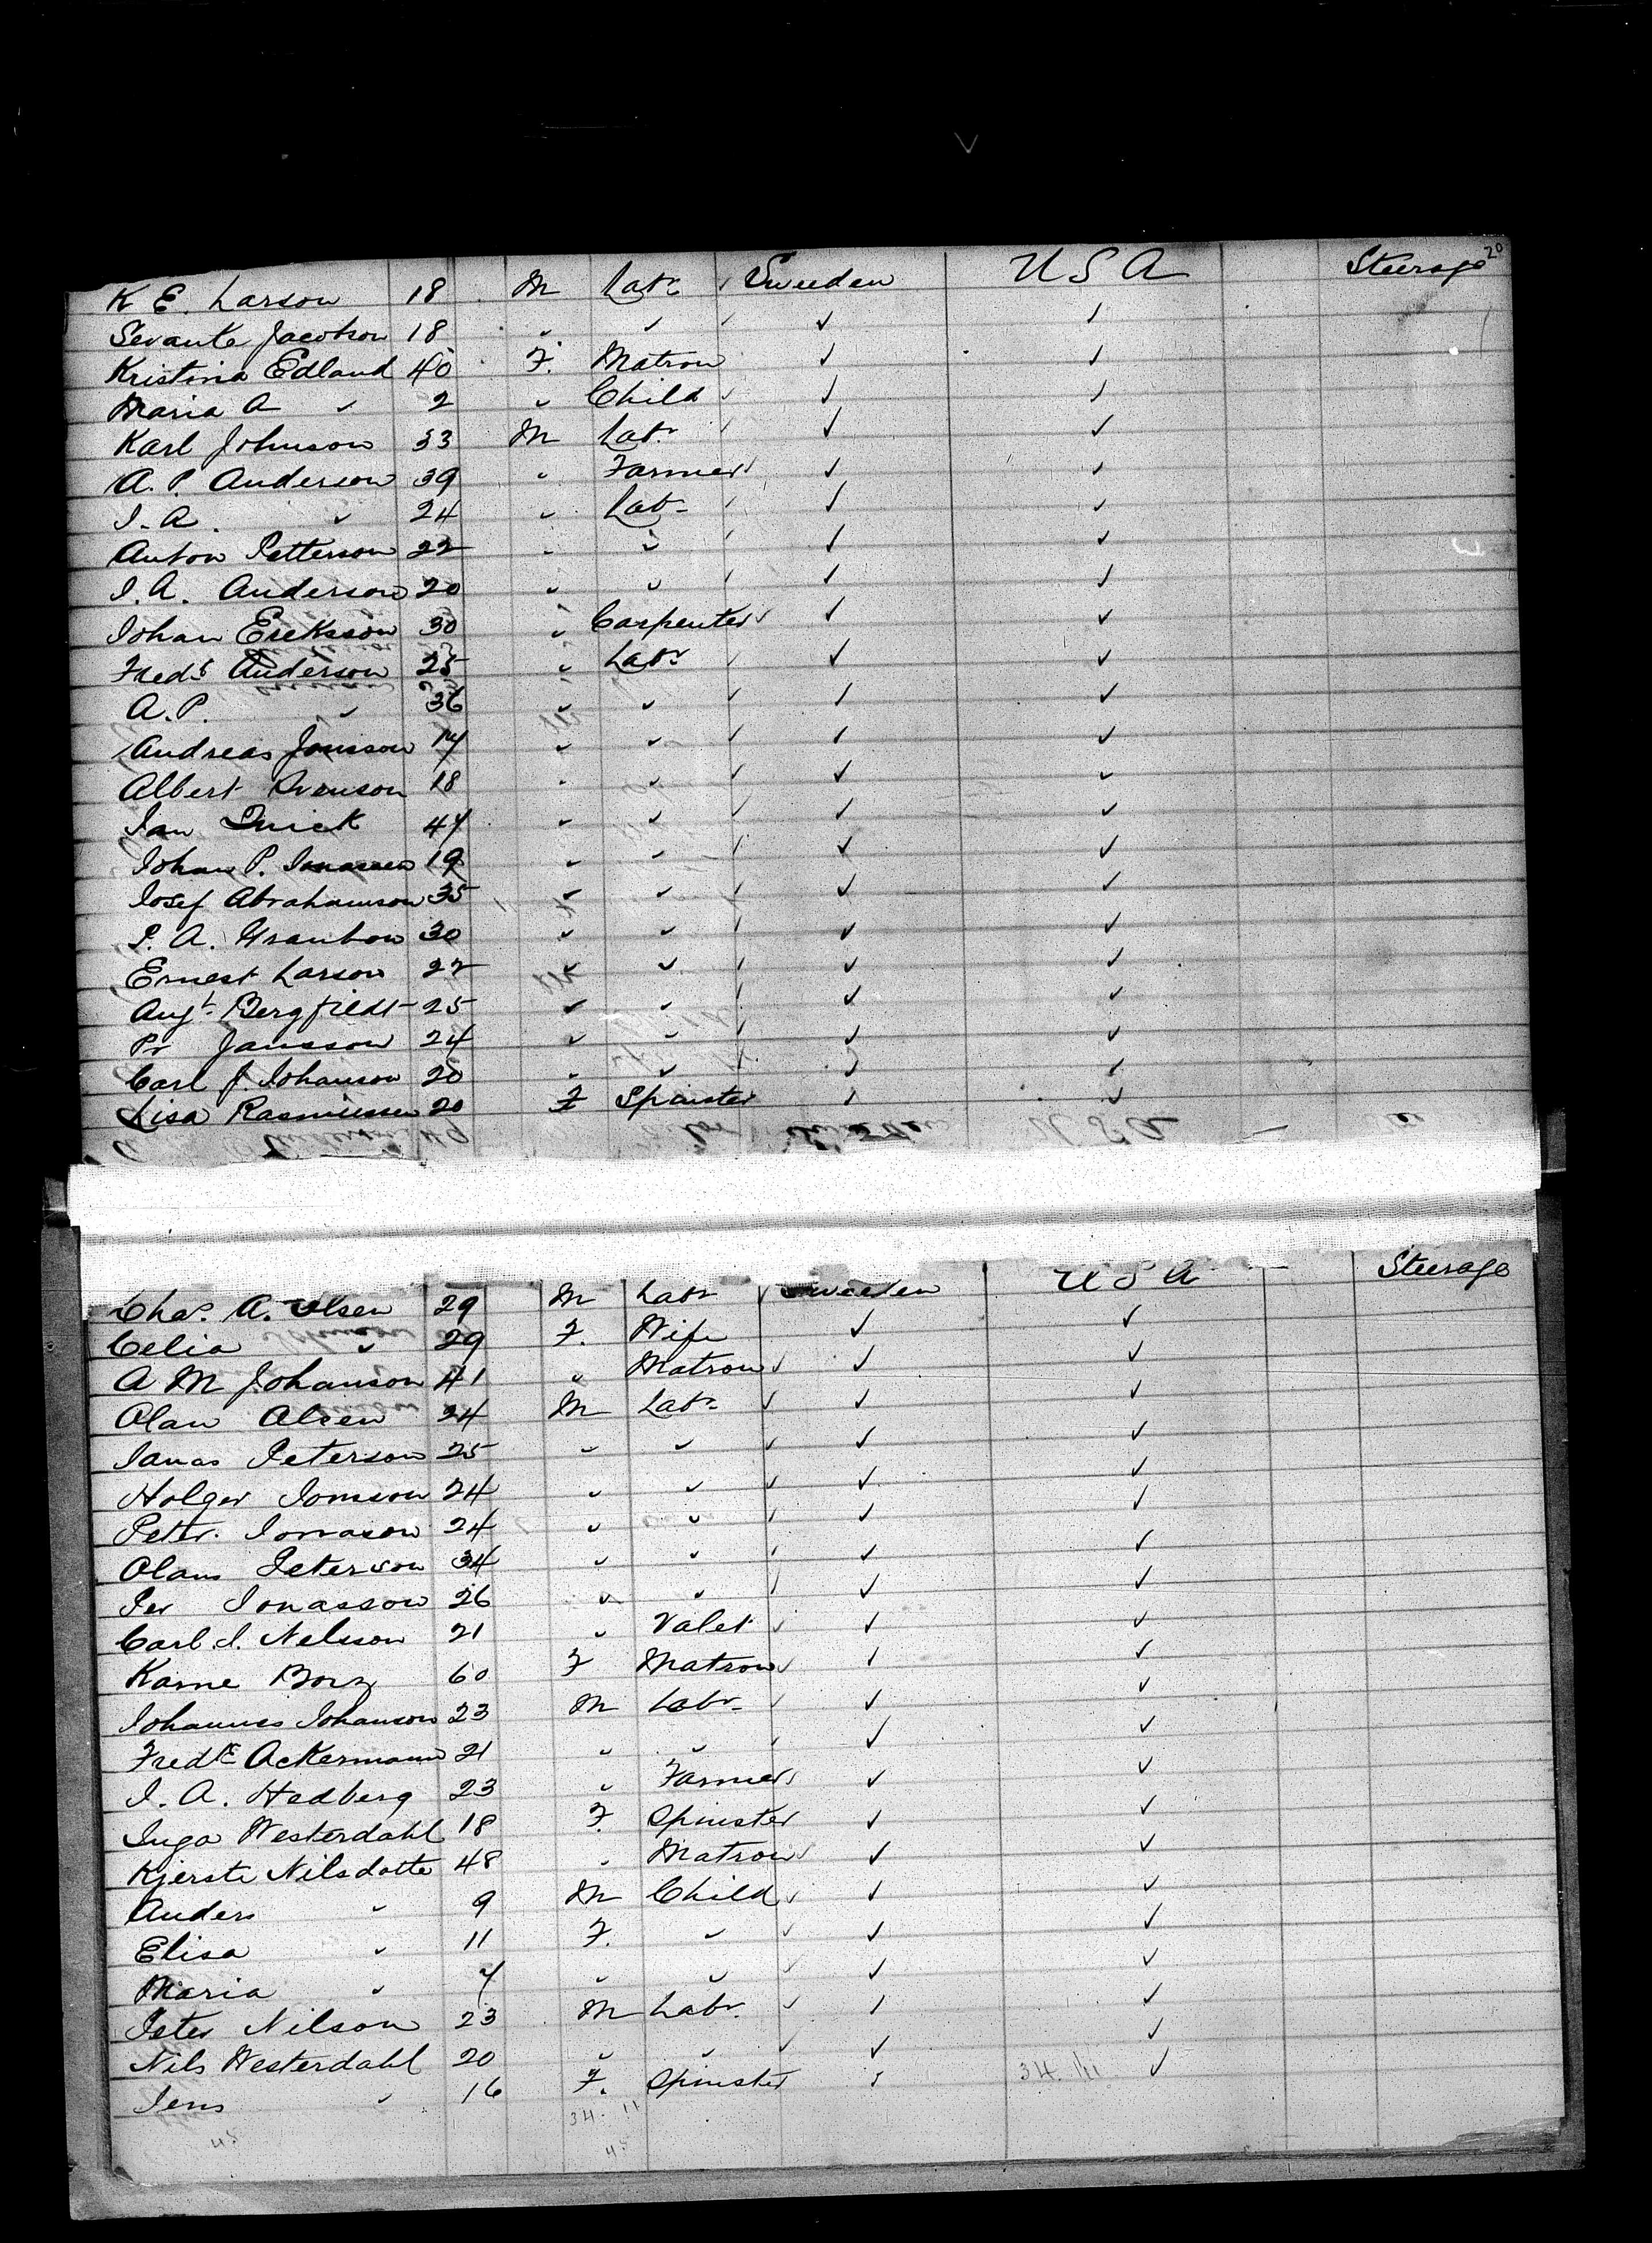 20
K E. Larson 18 M Labr Sweeden U S A Steerage
Sevante Jacobson 18 " " ✓ ✓
Kristina Edland 40 F. Matron ✓ ✓
Maria A " 2 " Child ✓ ✓
Karl Johnson 33 M Labr ✓ ✓
A. P. Anderson 39 " Farmer ✓ ✓
I. A. " 24 " Labr ✓ ✓
Anton Petterson 22 " " ✓ ✓
I. A. Anderson 20 " " ✓ ✓
Johan Ericksson 30 " Carpenter ✓ ✓
Fredk Anderson 25 " Labr ✓ ✓
A. P. " 36 " " ✓ ✓
Andreas Jonsson 17 " " ✓ ✓
Albert Svenson 18 " " ✓ ✓
Jan Quick 47 " " ✓ ✓
Johan P. Jonassen 19 " " ✓ ✓
Josef Abrahamson 35 " " ✓ ✓
P. A. Granbon 30 " " ✓ ✓
Ernest Larson 22 " " ✓ ✓
Augt Bergfieldt 25 " " ✓ ✓
Pr Jansson 24 " " ✓ ✓
Carl J. Johanson 20 " " ✓ ✓
Lisa Rasmussen 20 F Spinster ✓ ✓
Chas. A. Olsen 29 M Labr Sweeden U S A Steerage
Celia " 29 F. Wife ✓ ✓
A M Johanson 41 " Matron ✓ ✓
Olan Olsen 24 M Labr ✓ ✓
Janas Peterson 25 " " ✓ ✓
Holger Jonsson 24 " " ✓ ✓
Peter Jonason 24 " " ✓ ✓
Olans Peterson 34 " " ✓ ✓
Per Jonasson 26 " " ✓ ✓
Carl J. Nelsson 21 " Valet ✓ ✓
Karne Borg 60 F Matron ✓ ✓
Johannes Johanson 23 M Labr ✓ ✓
Fredk Ackermann 21 " " ✓ ✓
I. A. Hedberg 23 " Farmer ✓ ✓
Inga Westerdahl 18 F. Spinster ✓ ✓
Kjerste Nilsdotte 48 " Matron ✓ ✓
Anders " 9 M Child ✓ ✓
Elisa " 11 F. " ✓ ✓
Maria " 7 " " ✓ ✓
Peter Nilson 23 M Labr ✓ ✓
Nils Westerdahl 20 " " ✓ ✓
Jens " 16 F. Spinster ✓ ✓
34. 11 34. 11
45 45